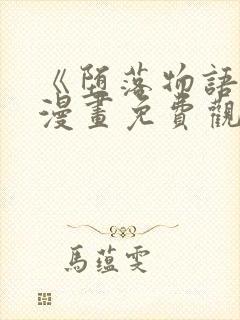 《堕落物語
漫畫免費觀
馬蕴雯